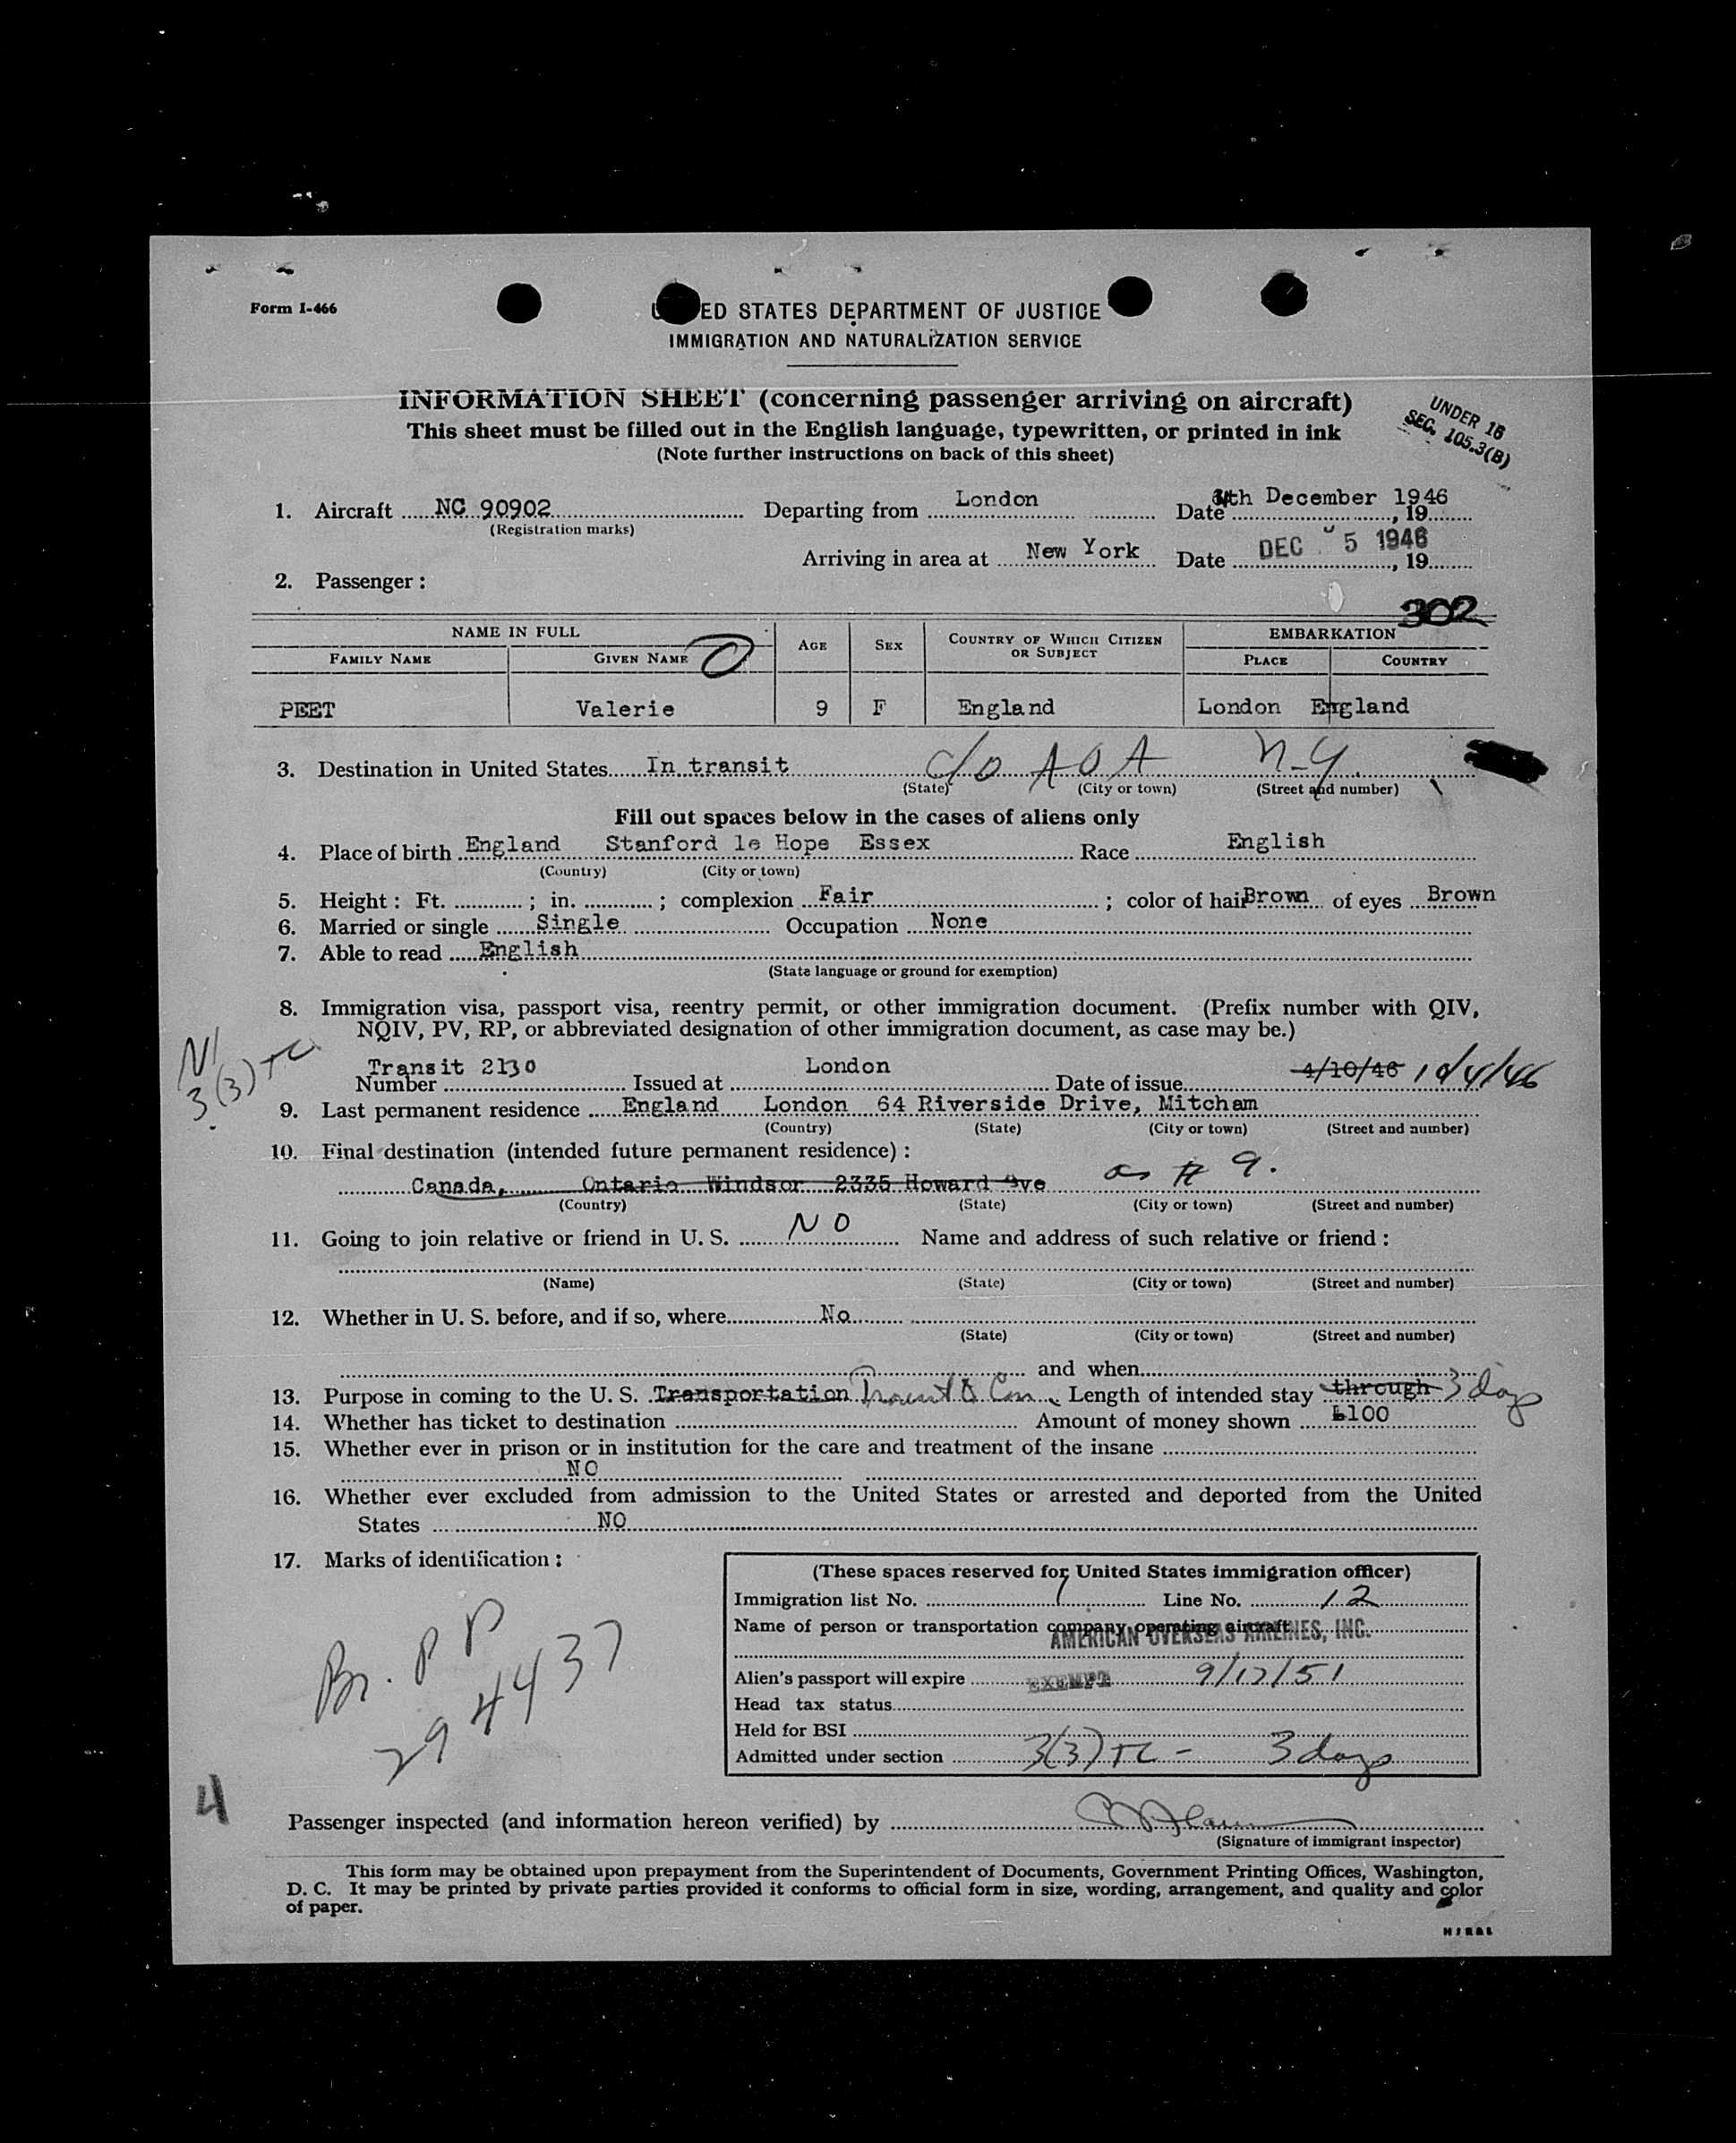 Form I-466
ED STATES DEPARTMENT OF JUSTICE
IMMIGRATION AND NATURALIZATION SERVICE
INFORMATION SHEET (concerning passenger arriving on aircraft)
This sheet must be filled out in the English language, typewritten, or printed in ink
(Note further instructions on back of this sheet)
UNDER 16
SEC. 105.3(B)
1. Aircraft NC 90902 Departing from London Date 4th December 1946, 19
(Registration marks)
Arriving in area at New York Date DEC 5 1946, 19
2. Passenger:
302
NAME IN FULL AGE SEX COUNTRY OF WHICH CITIZEN OR SUBJECT EMBARKATION
FAMILY NAME GIVEN NAME 0 PLACE COUNTRY
PEET Valerie 9 F England London England
3. Destination in United States In transit c/o AOA N.Y.
(State) (City or town) (Street and number)
Fill out spaces below in the cases of aliens only
4. Place of birth England Stanford le Hope Essex Race English
(Country) (City or town)
5. Height: Ft. ; in. ; complexion Fair ; color of hair Brown of eyes Brown
6. Married or single Single Occupation None
7. Able to read English
(State language or ground for exemption)
8. Immigration visa, passport visa, reentry permit, or other immigration document. (Prefix number with QIV,
NQIV, PV, RP, or abbreviated designation of other immigration document, as case may be.)
NI
3(3)TC
Number Transit 2130 Issued at London Date of issue 4/10/46 10/4/46
9. Last permanent residence England London 64 Riverside Drive, Mitcham
(Country) (State) (City or town) (Street and number)
10. Final destination (intended future permanent residence):
Canada, Ontario Windsor 2335 Howard Ave as # 9.
(Country) (State) (City or town) (Street and number)
11. Going to join relative or friend in U. S. NO Name and address of such relative or friend:
(Name) (State) (City or town) (Street and number)
12. Whether in U. S. before, and if so, where No
(State) (City or town) (Street and number)
and when
13. Purpose in coming to the U. S. Transportation Transit to Can. Length of intended stay through 3 days
14. Whether has ticket to destination Amount of money shown £100
15. Whether ever in prison or in institution for the care and treatment of the insane
NO
16. Whether ever excluded from admission to the United States or arrested and deported from the United
States NO
17. Marks of identification:
Br. PP
294437
4
(These spaces reserved for United States immigration officer)
Immigration list No. 1 Line No. 12
Name of person or transportation company operating aircraft
AMERICAN OVERSEAS AIRLINES, INC.
Alien's passport will expire EXEMPT 9/17/51
Head tax status
Held for BSI
Admitted under section 3(3) TC - 3 days
Passenger inspected (and information hereon verified) by
(Signature of immigrant inspector)
This form may be obtained upon prepayment from the Superintendent of Documents, Government Printing Offices, Washington,
D. C. It may be printed by private parties provided it conforms to official form in size, wording, arrangement, and quality and color
of paper.